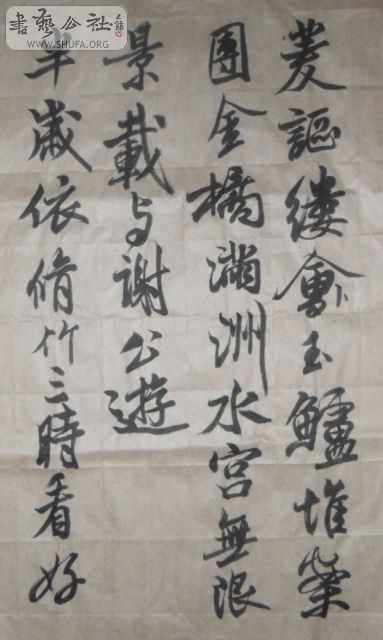 書藝公社
WWW.SHUFA.ORG
菱謳縷會玉鱸堆案
團金橘滿洲水宮無限
景載与謝公遊
半歲依脩竹三時看好